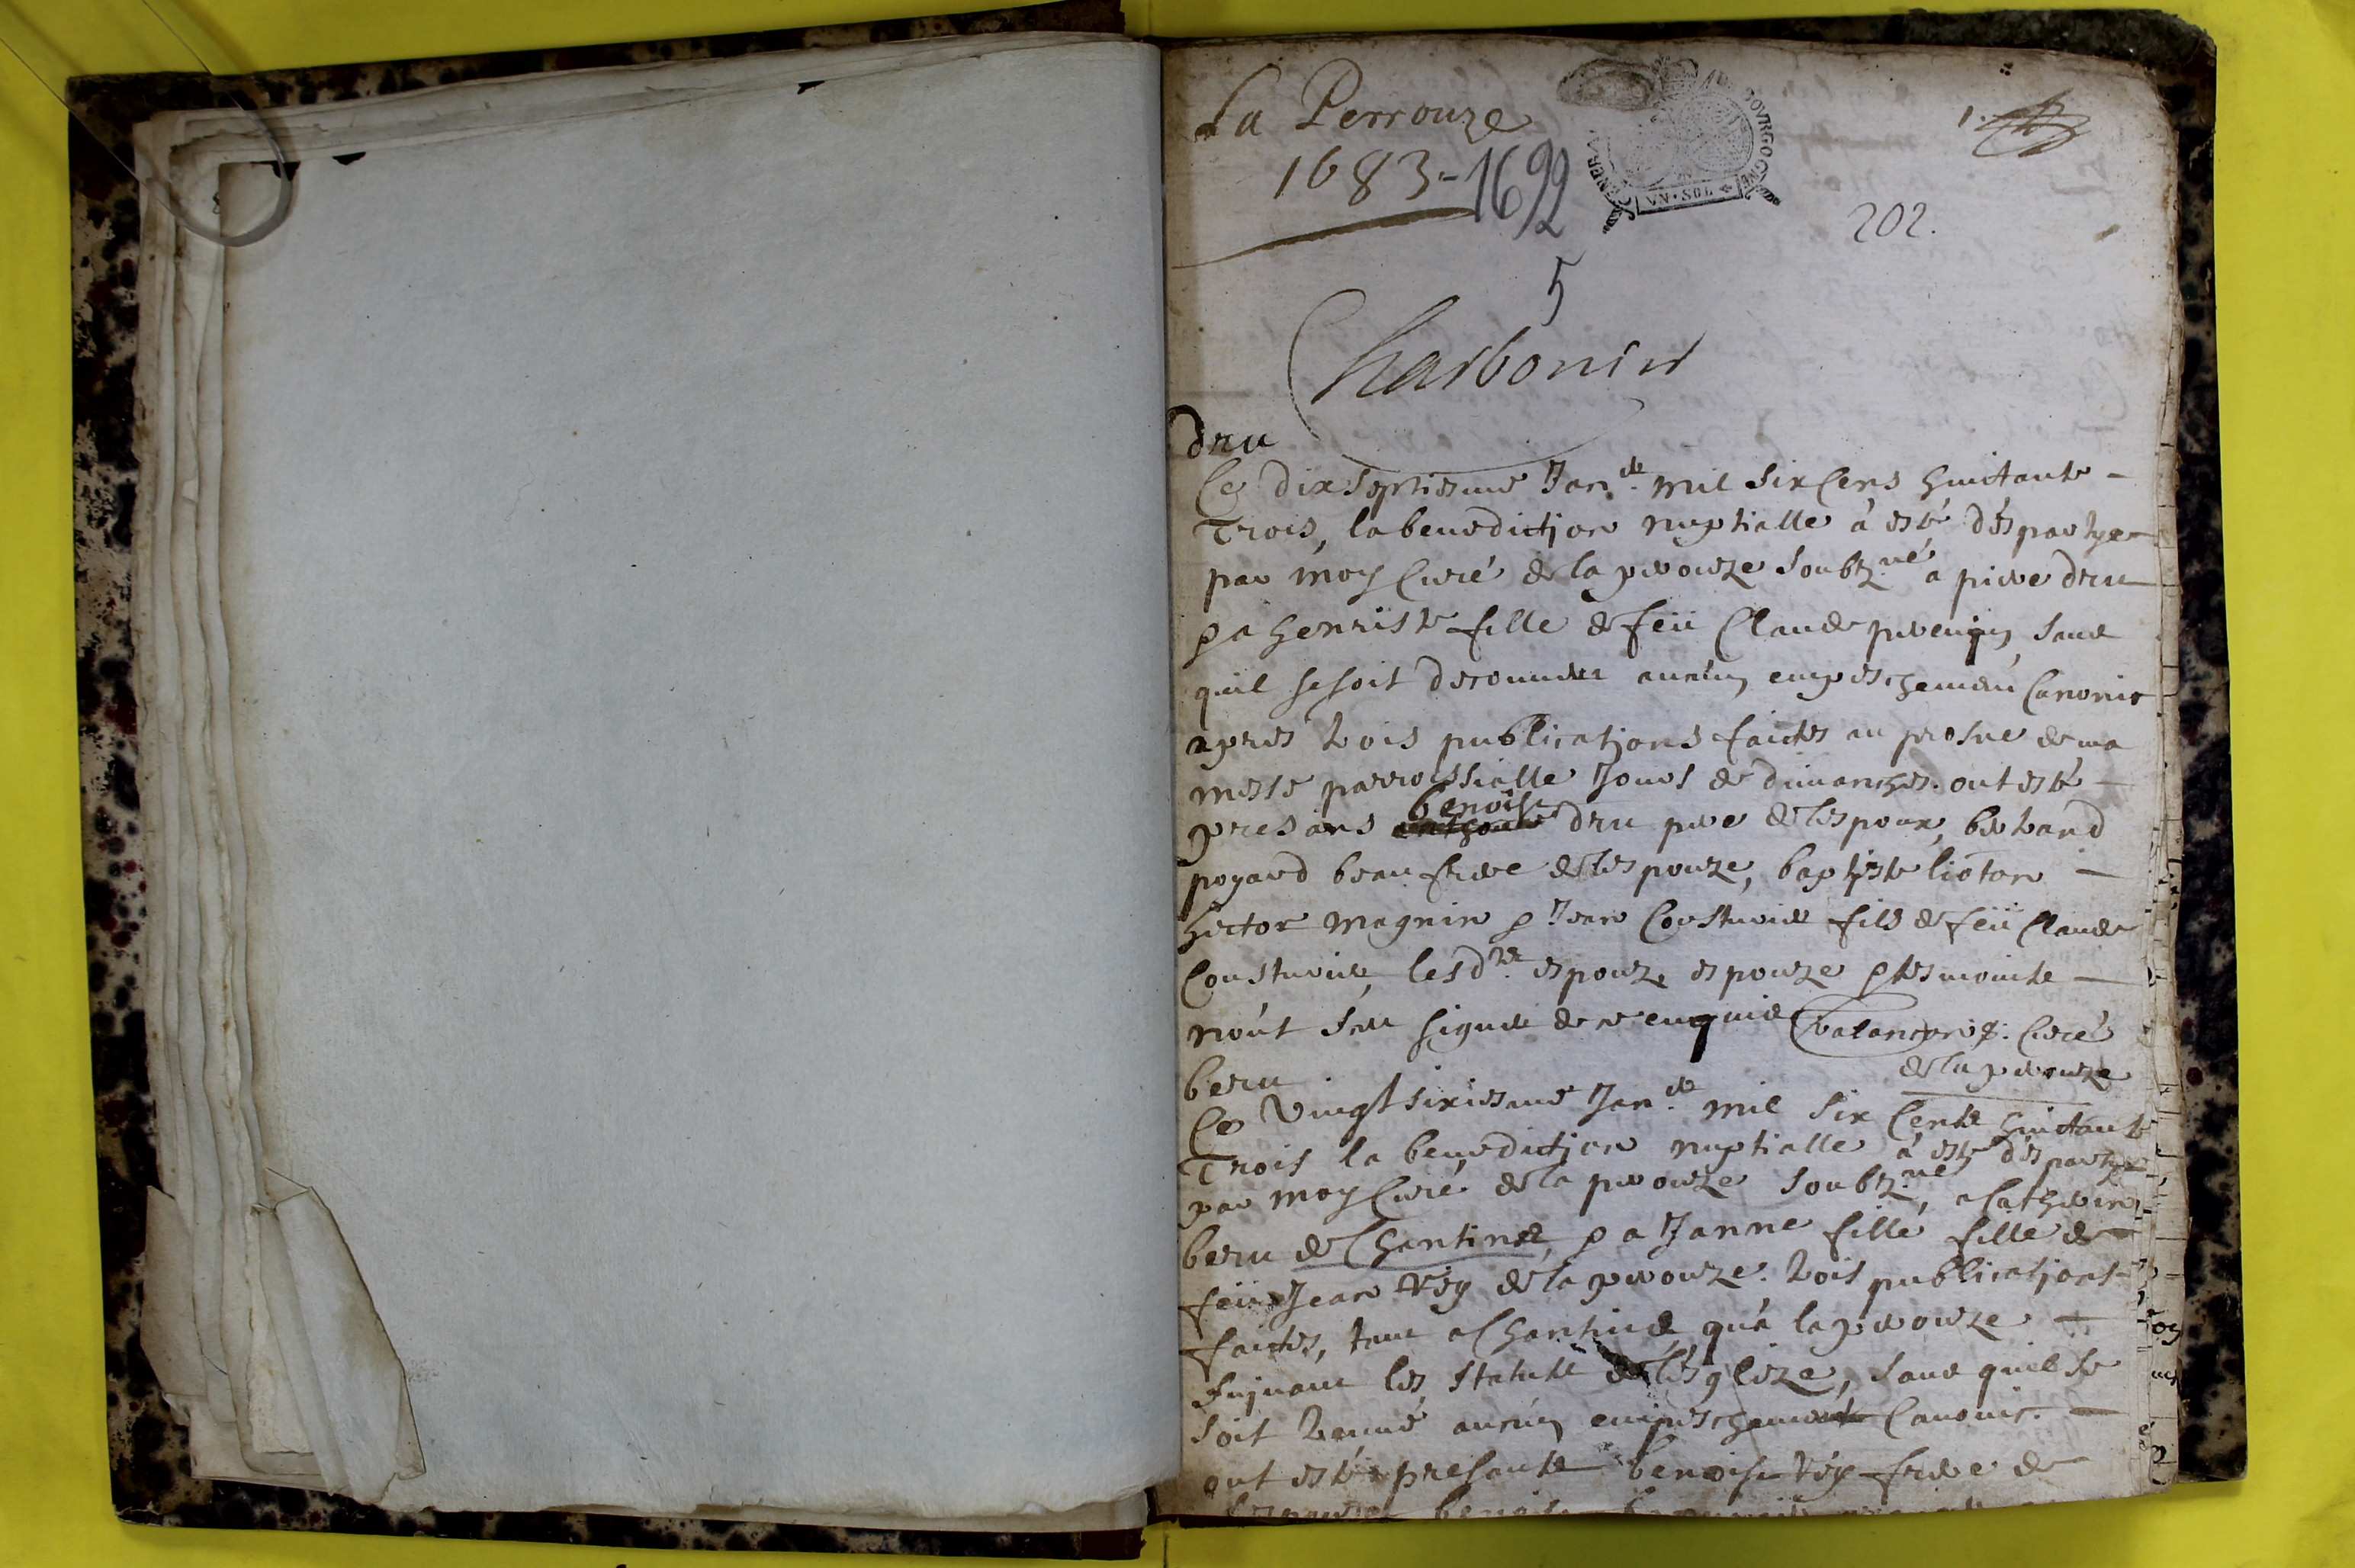 La Perrouze
1683-1692
GENERA BOVRGOGNE
VN·SOL
1.
202.
5
Charbonin
dru
Ce dixseptiesme Jan.er mil six cens huitante
Trois, la benediction nuptialle à esté départye
par moy Curé de la perouze soubz.né a pierre dru
& a henriste fille de feü Claude perenin, sans
quil se soit descouvert aucun empeschement Canonic
apres trois publications faictes au prosne de ma
messe parroissialle Jours de dimanches. ont esté
presans benoist dru pere de lespoux, bertrand
poyard beau frere de lespouze, baptiste lioton
hector magnin & Jean Cousturier fils de feü Claude
Cousturier, lesd.ts espoux, espouze & tesmoints
n'ont sceu signer de ce enquis Curé
de la perouze
beru
Ce vingtsixiesme Jan.er mil six Cents huitante
Trois la benediction nuptialle à esté départye
par moy Curé de la perouze soubz.né, a Catherin
beru de Chantines, & a Janne fille fille de
feü Jean Véy de la perouze. trois publications
faictes, tant a Chantines qu'à la perouze
suivant les statuts de l'églize, sans quil se
soit trouvé aucun empeschement Canonic.
ont esté presants benoist Véy frere de
lespouze benoist